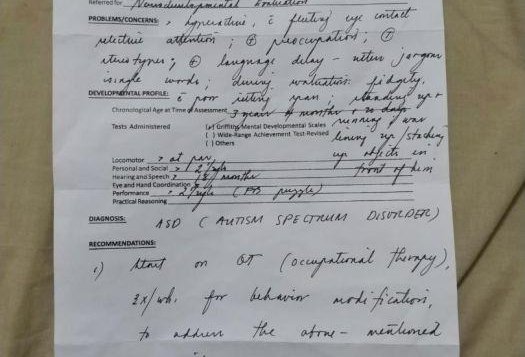 Referred for Neurodevelopmental Evaluation
PROBLEMS/CONCERNS: > hyperactive, c̄ fleeting eye contact
selective attention; ⊕ preoccupation; ⊕
stereotypes; ⊕ language delay - utters jargons
single words; during evaluation: fidgety,
DEVELOPMENTAL PROFILE: c̄ poor sitting span, standing up +
Chronological Age at Time of Assessment 3 years months + 20 days
running & was
Tests Administered Griffiths Mental Developmental Scales
( ) Wide-Range Achievement Test-Revised
( ) Others
lining up/stacking
up objects in
front of him
Locomotor > at par
Personal and Social >
Hearing and Speech > months
Eye and Hand Coordination
Performance > (FB puzzle)
Practical Reasoning
DIAGNOSIS: ASD (AUTISM SPECTRUM DISORDER)
RECOMMENDATIONS:
1) Start on OT (occupational therapy),
2x/wk. for behavior modification,
to address the above-mentioned